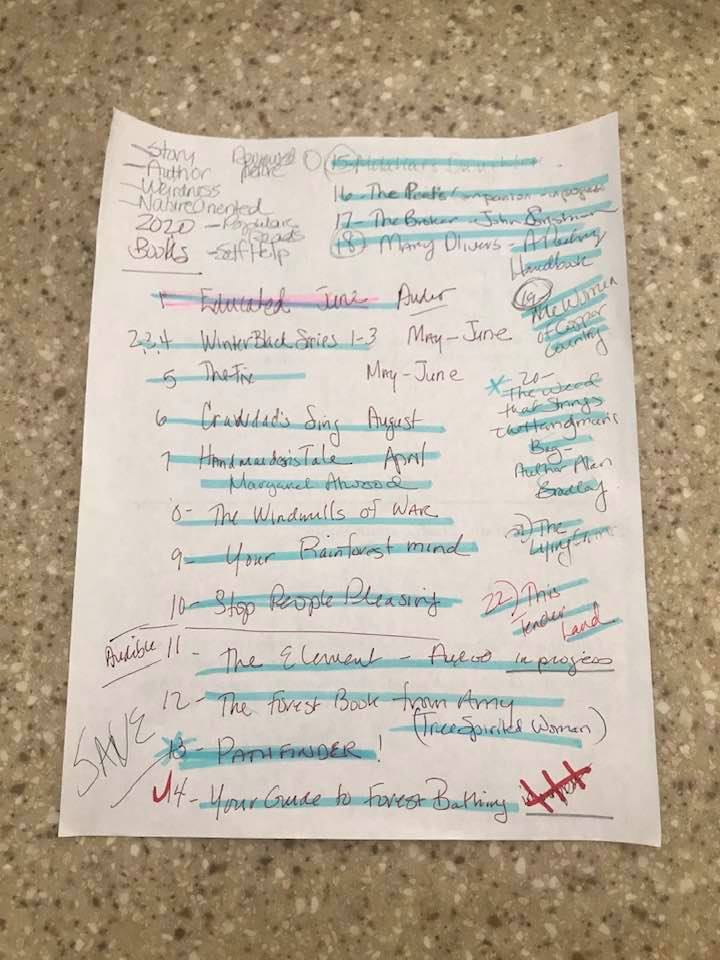 Story
Author
Weirdness
Nature Oriented
2020 - Popular
Books - Self Help
15
16 - The Poet's Companion in progress
17 - The Broker - John
18) Mary Olivers - A Poetry
Handbook
19
The Women
of Copper
Country
1 Educated June Audio
2,3,4 Winter Black Series 1-3 May - June
5 The Fix May - June
6 Crawdad's Sing August
7 Handmaiden's Tale April
Margaret Atwood
8 - The Windmills of War
9 - Your Rainforest mind
10 - Stop People Pleasing
20 -
The Weed
that Strings
the Hangman's
Bag -
Author Alan
Bradley
The
Lying
22) This
Tender
Land
Audible 11 - The Element - Audio in progress
12 - The Forest Book from Amy
(Tree Spirited Woman)
SAVE
13 - PATHFINDER!
14 - Your Guide to Forest Bathing